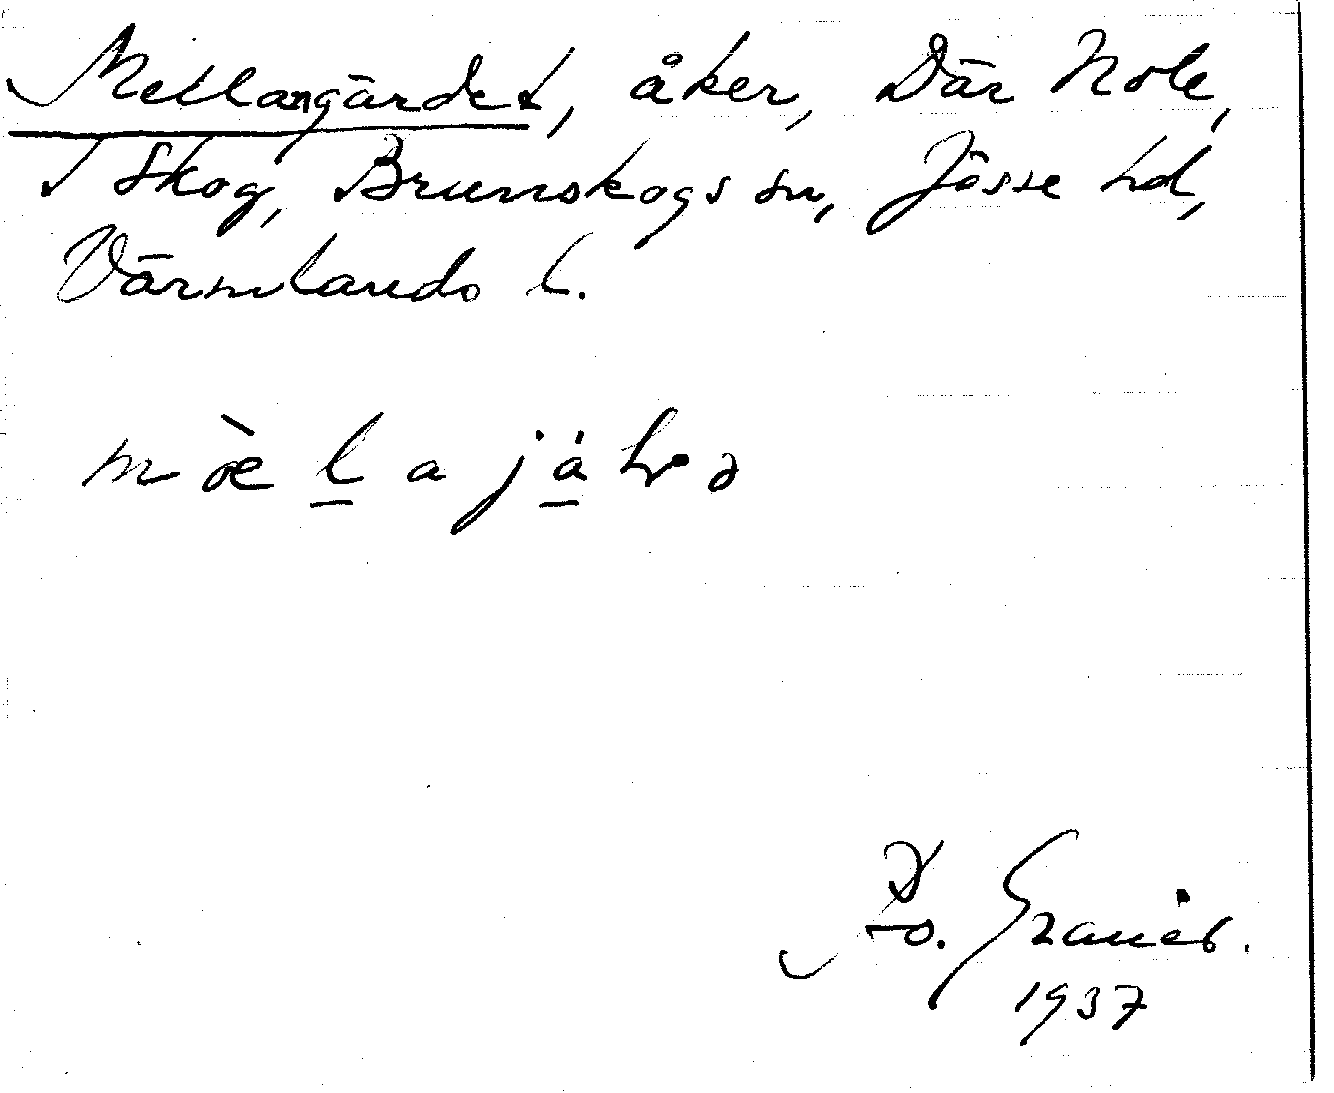 Mellangärdet, åker, Där Nole,
I Skog, Brunskogs sn, Jösse hd,
Värmlands l.
mæ̀lajäɫɷ
Granér.
1937